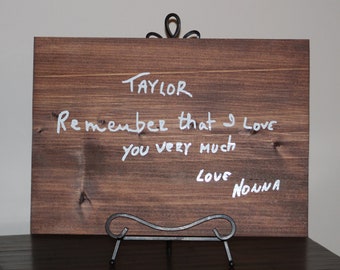 TAYLOR
Remember that I LOVE
you very much
LOVE
NONNA